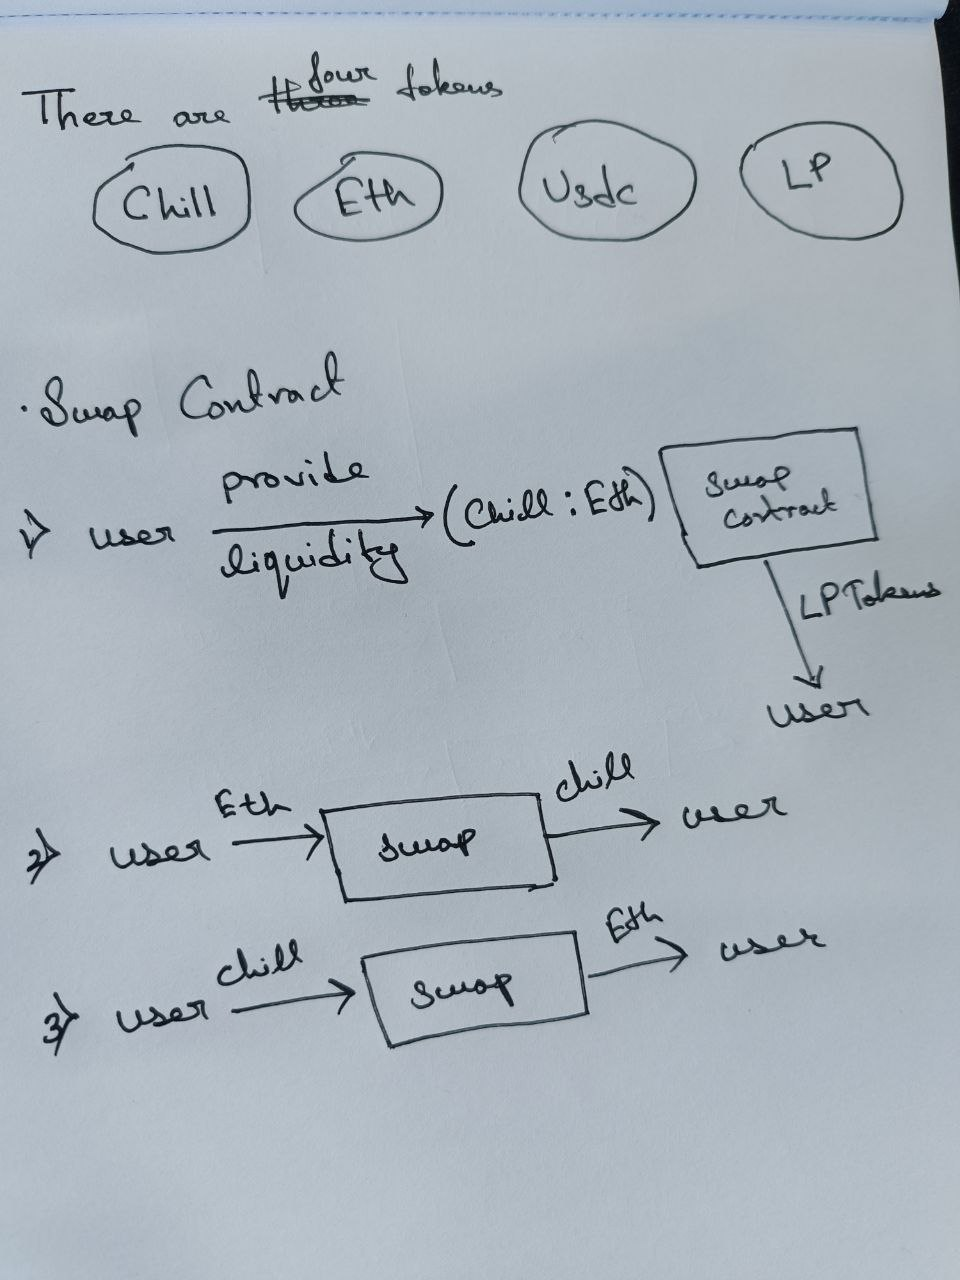 There are four tokens
Chill Eth Usdc LP
· Swap Contract
1) user provide liquidity (Chill : Eth) Swap contract
LP Tokens
user
2) user Eth swap chill user
3) user chill swap Eth user